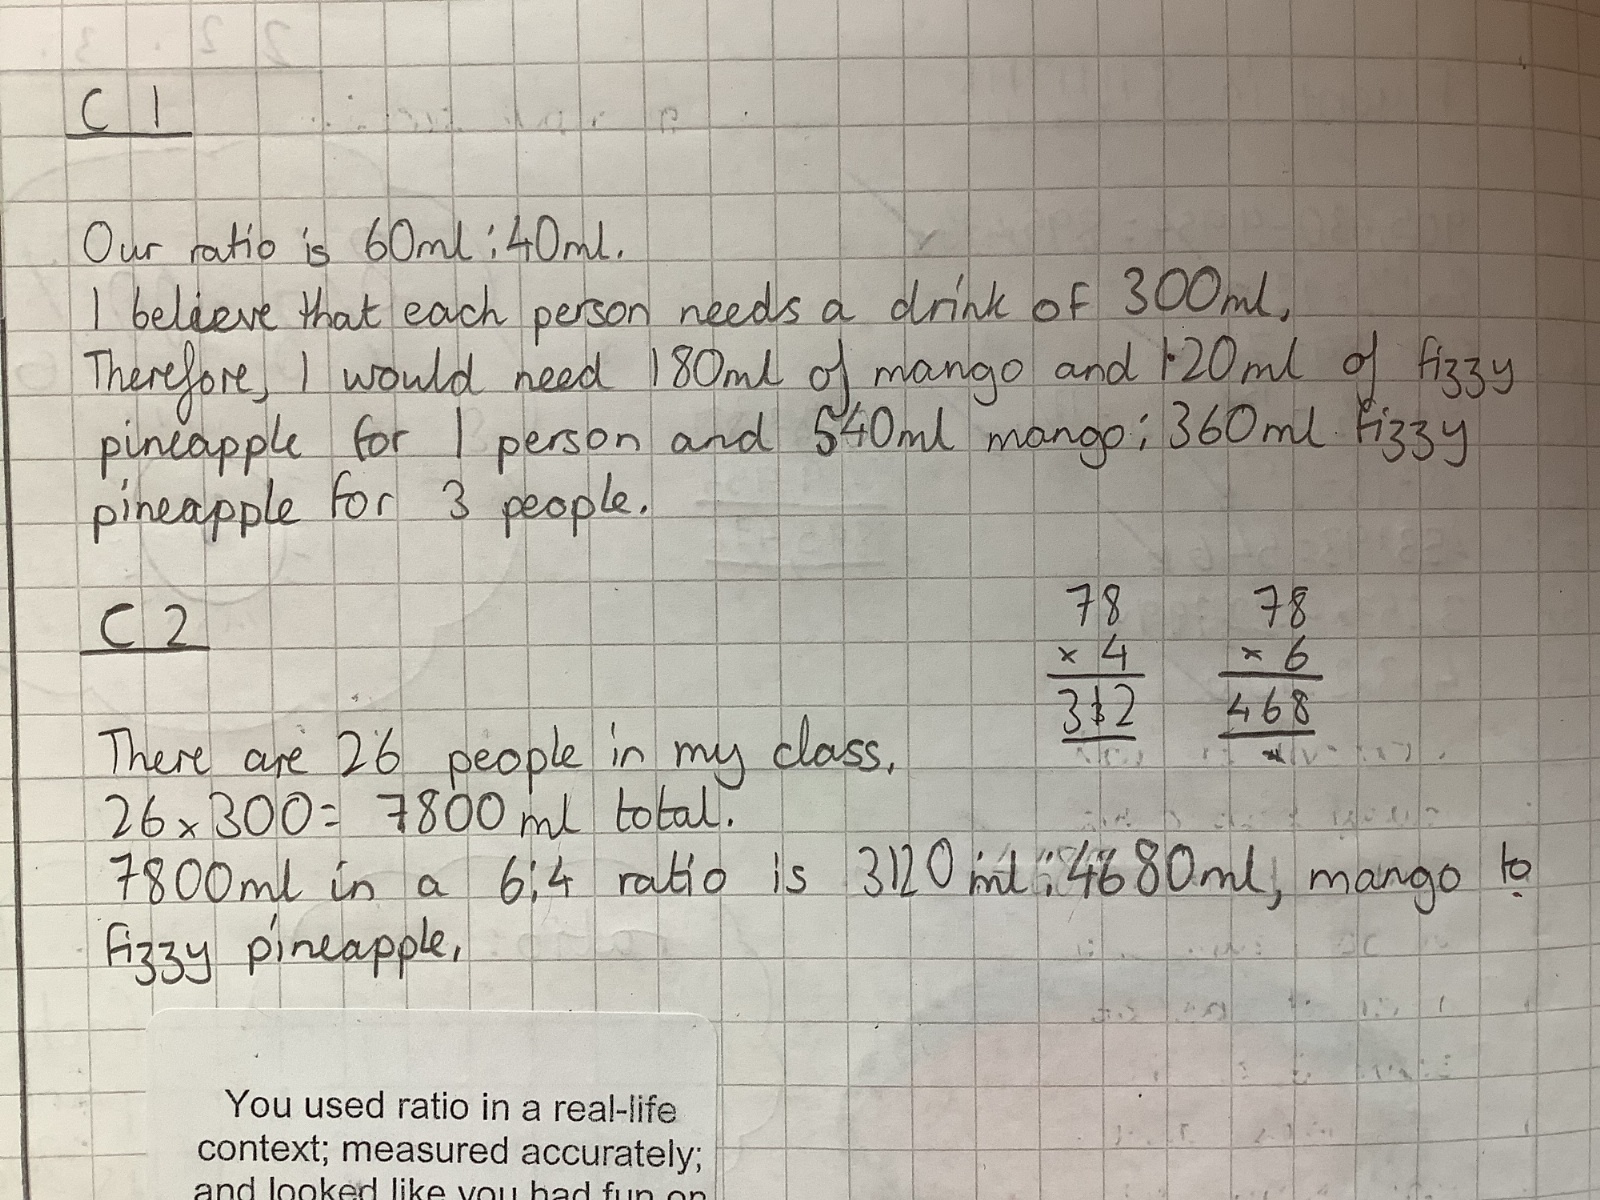 C 1
Our ratio is 60ml : 40ml.
I believe that each person needs a drink of 300ml.
Therefore, I would need 180ml of mango and 120ml of fizzy
pineapple for 1 person and 540ml mango : 360ml fizzy
pineapple for 3 people.
C 2
78
x 4
312
78
x 6
468
There are 26 people in my class.
26 x 300 = 7800 ml total.
7800ml in a 6:4 ratio is 3120 ml : 4680ml, mango to
fizzy pineapple.
You used ratio in a real-life
context; measured accurately;
and looked like you had fun on